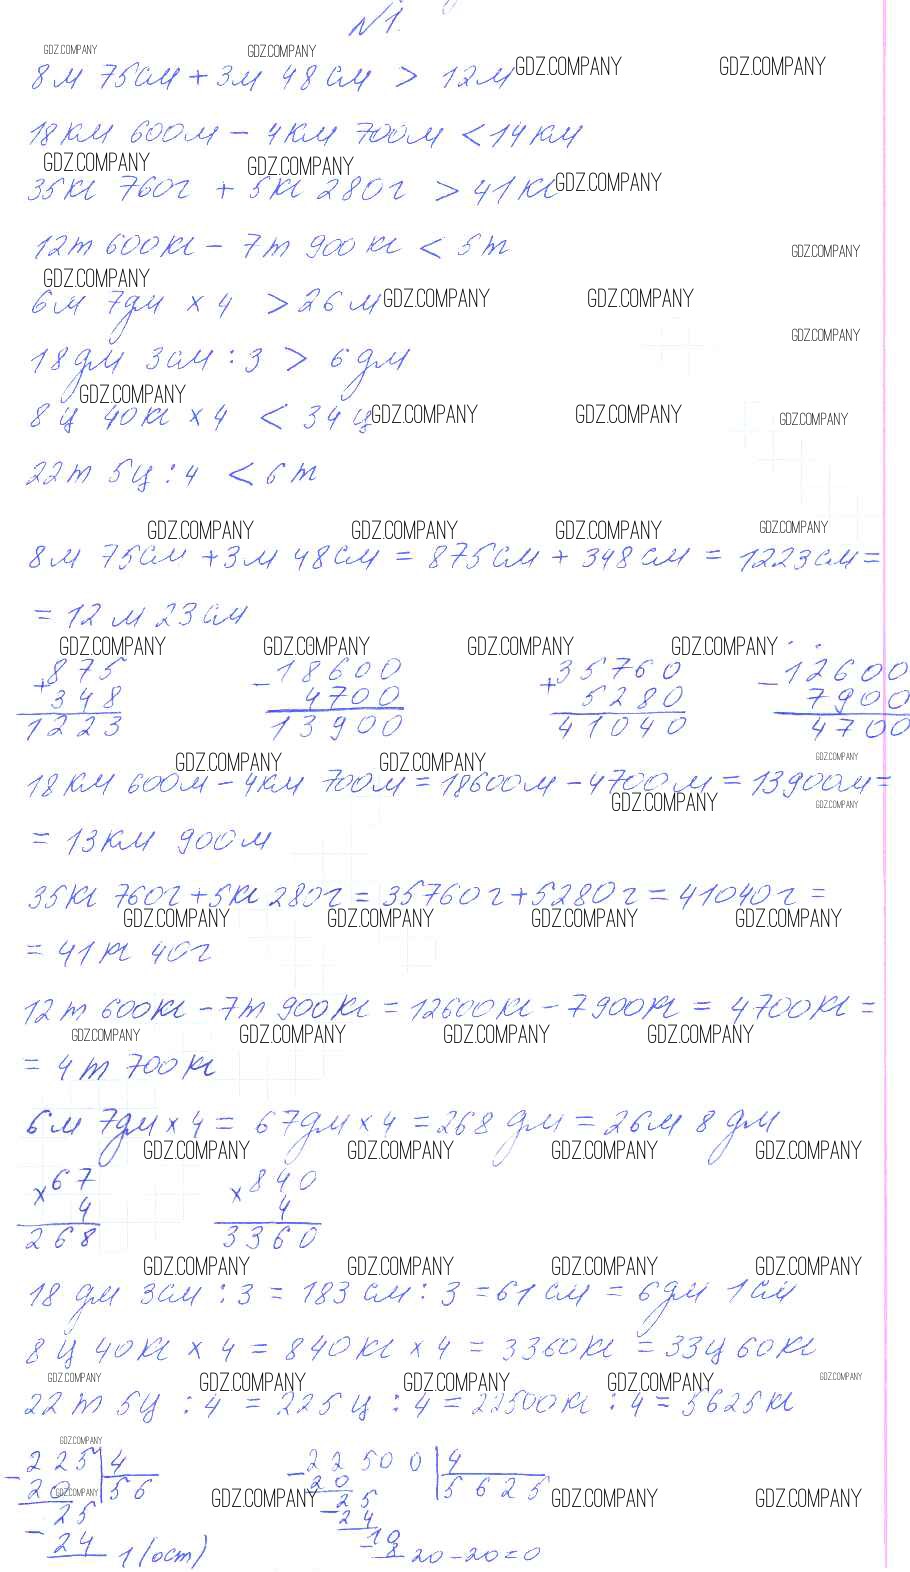 №1.
8м 75см + 3м 48см > 12м
18км 600м - 4км 700м < 14км
35кг 760г + 5кг 280г > 41кг
12т 600кг - 7т 900кг < 5т
6м 7дм × 4 > 26м
18дм 3см : 3 > 6дм
8ц 40кг × 4 < 34ц
22т 5ц : 4 < 6т
8м 75см + 3м 48см = 875см + 348см = 1223см =
= 12м 23см
+875 -18600 +35760 -12600
348 4700 5280 7900
1223 13900 41040 4700
18км 600м - 4км 700м = 18600м - 4700м = 13900м =
= 13км 900м
35кг 760г + 5кг 280г = 35760г + 5280г = 41040г =
= 41кг 40г
12т 600кг - 7т 900кг = 12600кг - 7900кг = 4700кг =
= 4т 700кг
6м 7дм × 4 = 67дм × 4 = 268дм = 26м 8дм
×67 ×840
4 4
268 3360
18дм 3см : 3 = 183см : 3 = 61см = 6дм 1см
8ц 40кг × 4 = 840кг × 4 = 3360кг = 33ц 60кг
22т 5ц : 4 = 225ц : 4 = 22500кг : 4 = 5625кг
-225 4 -22500 4
20 56 20 5625
-25 -25
24 24
1(ост) -10
8 20-20=0
GDZ.COMPANY